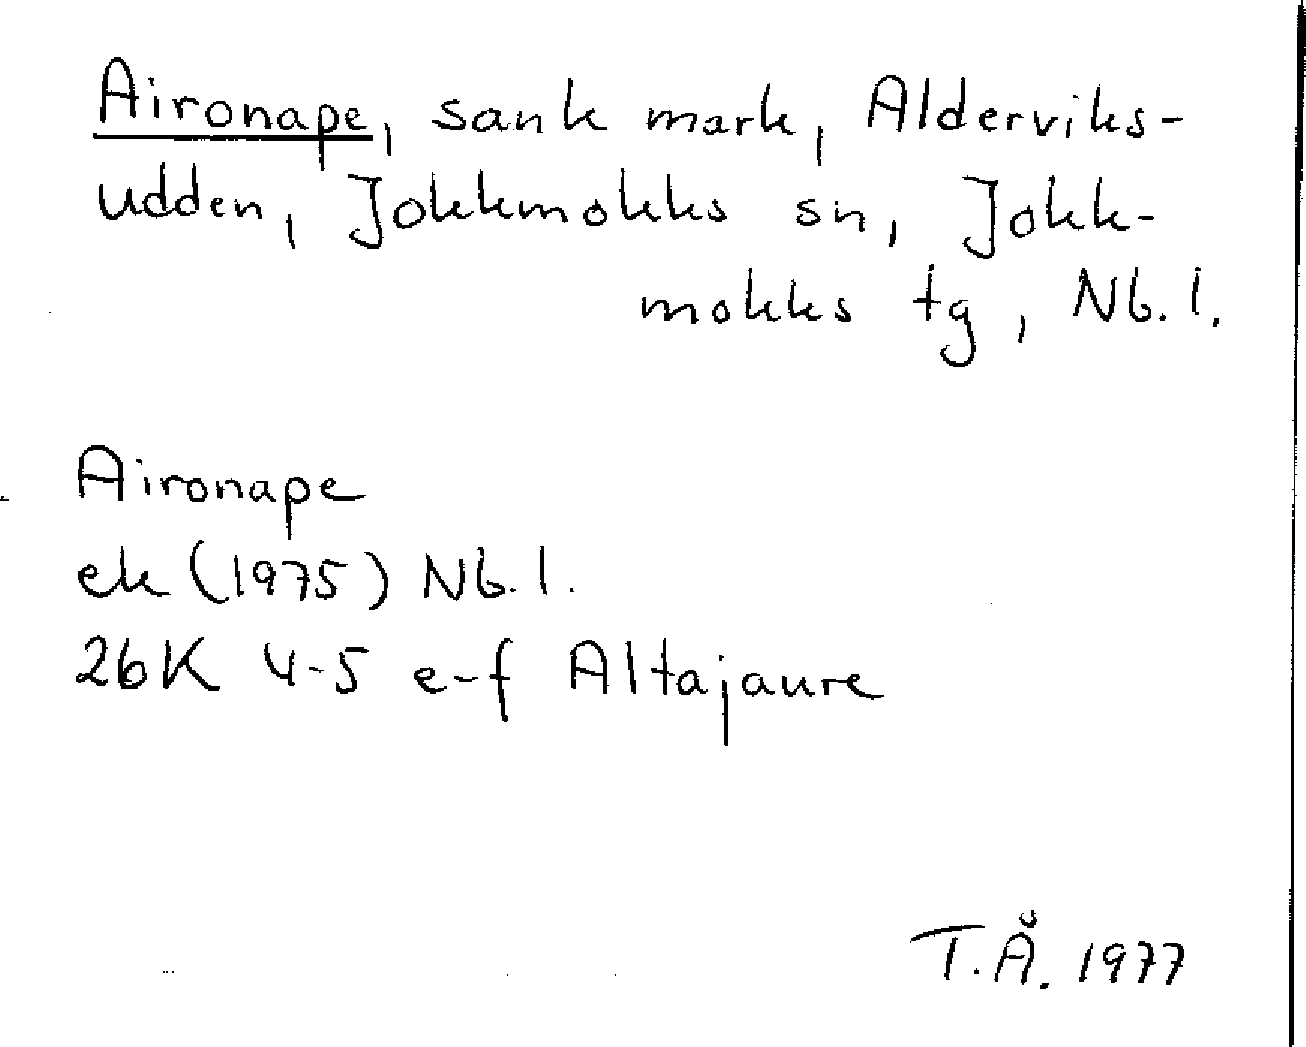 Aironape, sank mark, Alderviks-
udden, Jokkmokks sn, Jokk-
mokks tg, Nb. l.
Aironape
ek (1975) Nb. l.
26K 4-5 e-f Altajaure
T.Å. 1977